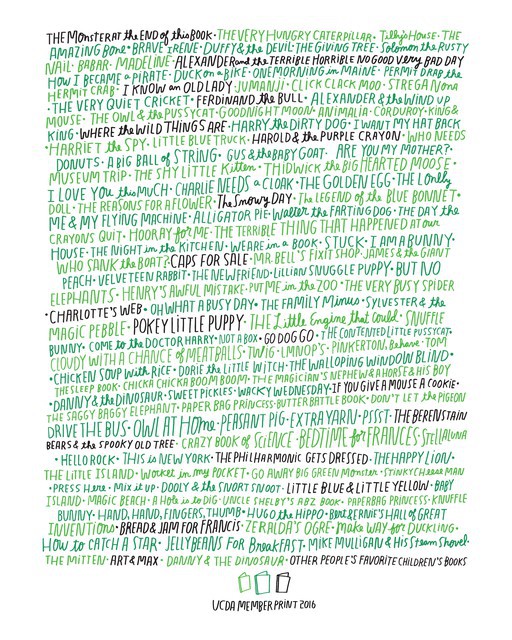 THE MONSTER AT THE END OF THIS BOOK · THE VERY HUNGRY CATERPILLAR · Tilly's House · THE
AMAZING Bone · BRAVE IRENE · DUFFY & the DEVIL · THE GIVING TREE · Solomon the RUSTY
NAIL · BABAR · MADELINE · ALEXANDER and the TERRIBLE HORRIBLE NO GOOD VERY BAD DAY
HOW I BECAME a PIRATE · DUCK ON a BIKE · ONE MORNING in MAINE · PERMIT DRAB the
HERMIT CRAB · I KNOW an OLD LADY · JUMANJI · CLICK CLACK MOO · STREGA NONA
· THE VERY QUIET CRICKET · FERDINAND the BULL · ALEXANDER & the WIND UP
MOUSE · THE OWL & the PUSSYCAT · GOODNIGHT MOON · ANIMALIA · CORDUROY · KING &
KING · WHERE the WILD THINGS ARE · HARRY the DIRTY DOG · I WANT MY HAT BACK
· HARRIET the SPY · LITTLE BLUE TRUCK · HAROLD & the PURPLE CRAYON · WHO NEEDS
DONUTS · A BIG BALL of STRING · GUS & the BABY GOAT · ARE YOU MY MOTHER? ·
MUSEUM TRIP · THE SHY LITTLE Kitten · THIDWICK the BIG HEARTED MOOSE ·
I LOVE YOU this MUCH · CHARLIE NEEDS a CLOAK · THE GOLDEN EGG · THE Lonely
DOLL · THE REASONS FOR A FLOWER · The Snowy DAY · The LEGEND of the BLUE BONNET ·
ME & MY FLYING MACHINE · ALLIGATOR PIE · Walter the FARTING DOG · THE DAY the
CRAYONS QUIT · HOORAY for ME · THE TERRIBLE THING THAT HAPPENED at our
HOUSE · THE NIGHT in the KITCHEN · WE ARE in a BOOK · STUCK · I AM A BUNNY ·
WHO SANK the BOAT? · CAPS FOR SALE · MR. BELL'S FIXIT SHOP · JAMES & the GIANT
PEACH · VELVETEEN RABBIT · THE NEW FRIEND · LILLIAN SNUGGLE PUPPY · BUT NO
ELEPHANTS · HENRY'S AWFUL MISTAKE · PUT ME in the ZOO · THE VERY BUSY SPIDER
· CHARLOTTE'S WEB · OH WHAT A BUSY DAY · THE FAMILY Minus · SYLVESTER & the
MAGIC PEBBLE · POKEY LITTLE PUPPY · THE Little Engine that Could · SNUFFLE
BUNNY · COME to the DOCTOR HARRY · NOT A BOX · GO DOG GO · THE CONTENTED LITTLE PUSSYCAT ·
CLOUDY WITH A CHANCE of MEATBALLS · TWIG · LMNOP'S · PINKERTON, Behave · TOM
· CHICKEN SOUP With RICE · DORIE the LITTLE WITCH · THE WALLOPING WINDOW BLIND ·
THE SLEEP BOOK · CHICKA CHICKA BOOM BOOM · THE MAGICIAN'S NEPHEW & A HORSE & HIS BOY
· DANNY & the DINOSAUR · SWEET PICKLES · WACKY WEDNESDAY · IF YOU GIVE A MOUSE A COOKIE ·
THE SAGGY BAGGY ELEPHANT · PAPER BAG PRINCESS · BUTTER BATTLE BOOK · DON'T LET the PIGEON
DRIVE THE BUS · OWL AT HOME · PEASANT PIG · EXTRA YARN · PSST · THE BERENSTAIN
BEARS & the SPOOKY OLD TREE · CRAZY BOOK of SCIENCE · BEDTIME for FRANCES · STELLALUNA
· HELLO ROCK · THIS is NEW YORK · THE PHILHARMONIC GETS DRESSED · THE HAPPY LION ·
THE LITTLE ISLAND · Worker in my POCKET · GO AWAY BIG GREEN MONSTER · STINKY CHEESE MAN
· PRESS Here · Mix it UP · DOOLY & the SNORT SNOOT · LITTLE BLUE & LITTLE YELLOW · BABY
ISLAND · MAGIC BEACH · A Hole is to DIG · UNCLE SHELBY'S ABZ BOOK · PAPERBAG PRINCESS · KNUFFLE
BUNNY · HAND, HAND, FINGERS, THUMB · HUGO the HIPPO · Bert & ERNIE'S HALL of GREAT
INVENTIONS · BREAD & JAM FOR FRANCIS · ZERALDA'S OGRE · Make WAY for DUCKLING ·
HOW to CATCH A STAR · JELLYBEANS FOR BREAKFAST · MIKE MULLIGAN & HIS STEAM Shovel ·
THE MITTEN · ART & MAX · DANNY & THE DINOSAUR · OTHER PEOPLE'S FAVORITE CHILDREN'S BOOKS
UCDA MEMBER PRINT 2016